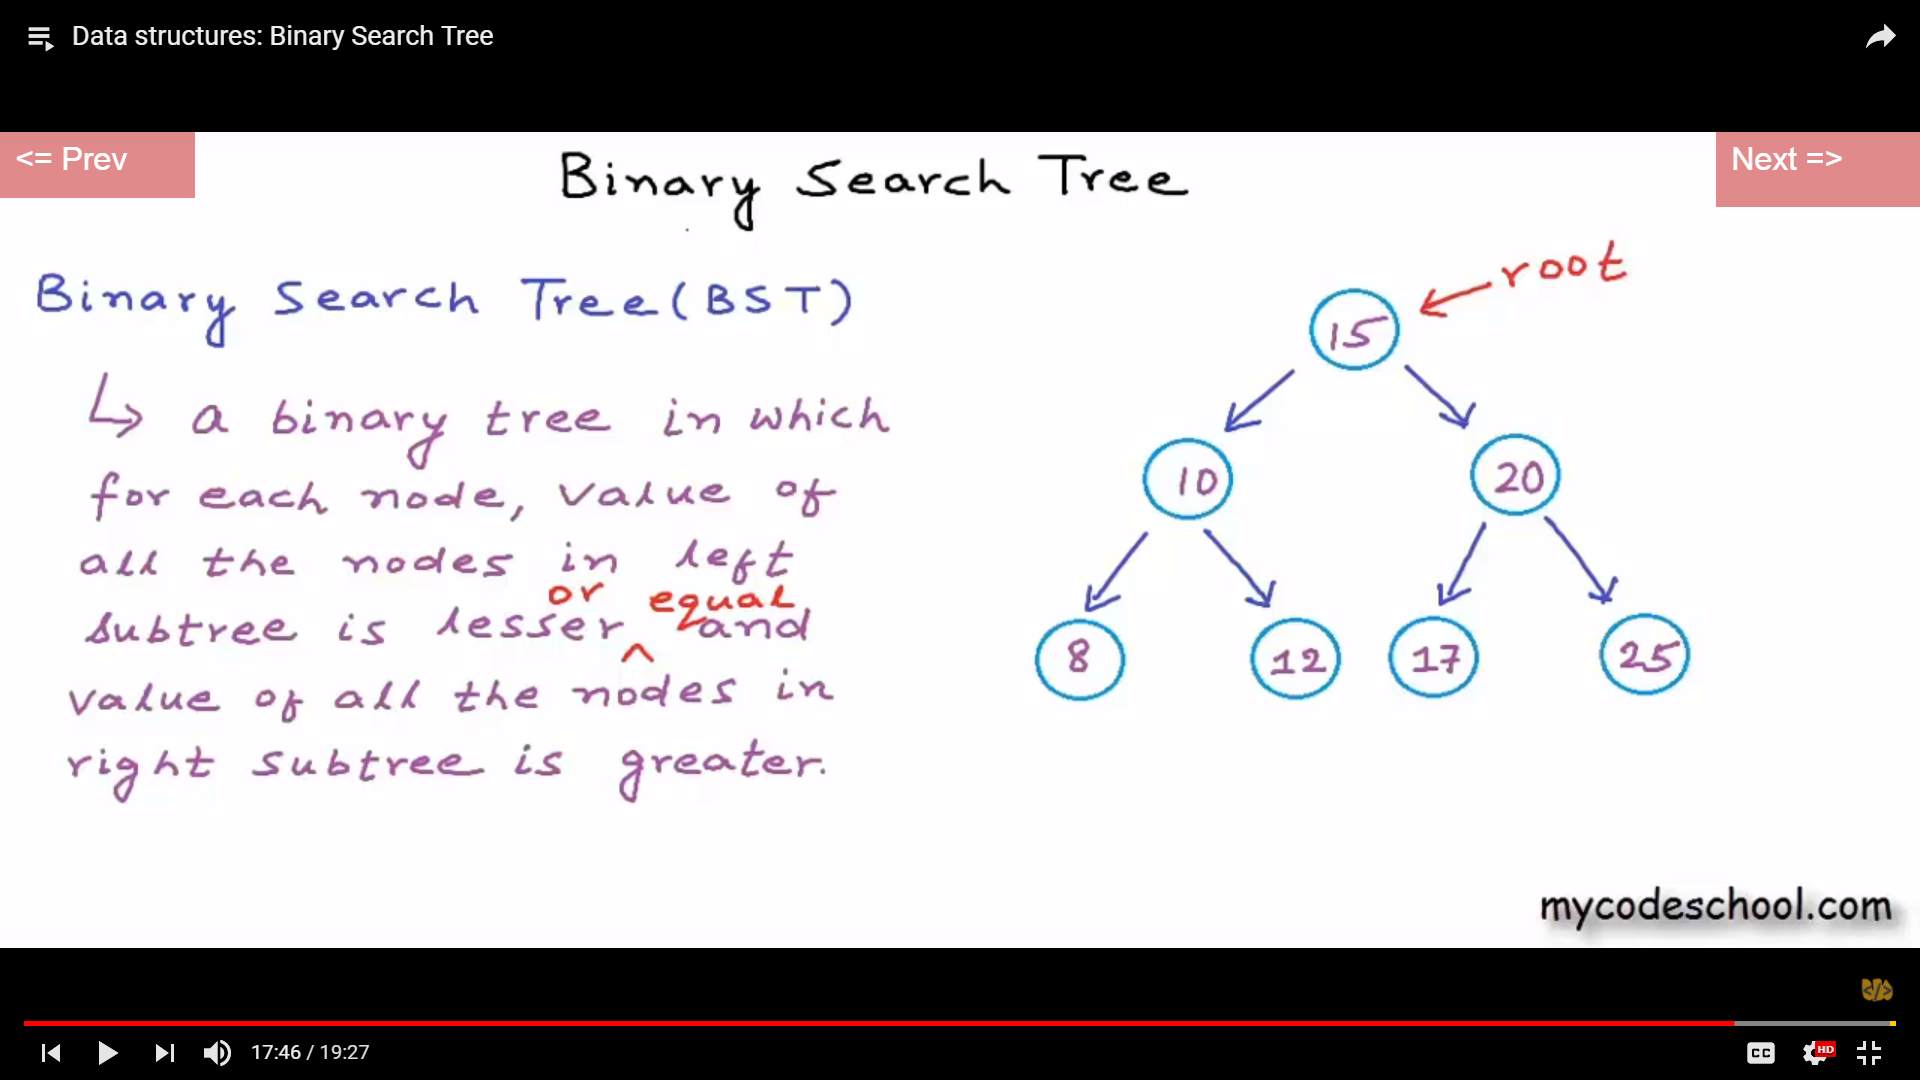 Data structures: Binary Search Tree
<= Prev
Next =>
Binary Search Tree
Binary Search Tree (BST)
↳ a binary tree in which
for each node, value of
all the nodes in left
or equal
subtree is lesser ^ and
value of all the nodes in
right subtree is greater.
root
15
10
20
8
12
17
25
mycodeschool.com
</>
17:46 / 19:27
CC
HD